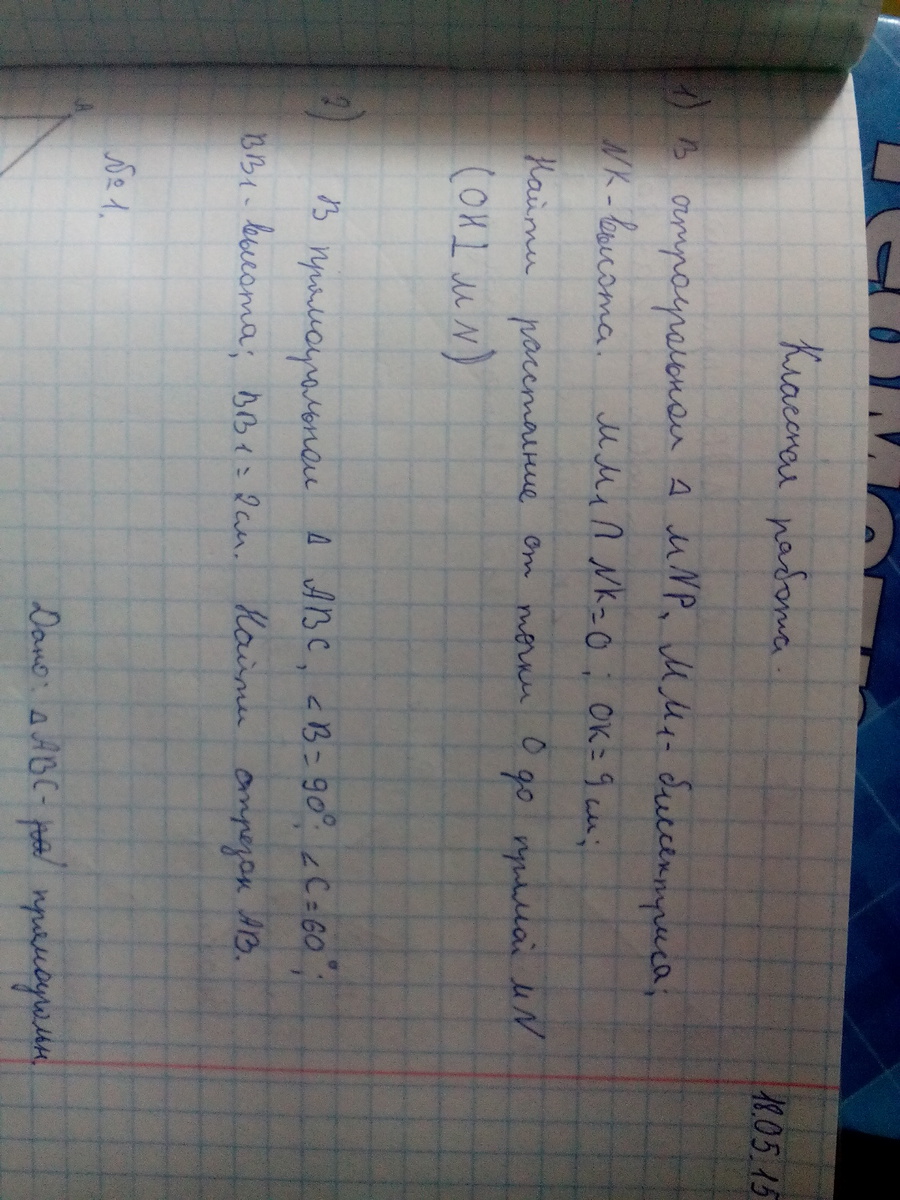 18.05.15
Классная работа.
1) В остроугольном Δ MNP, MM1 - биссектриса;
NK - высота. MM1 ∩ NK = O ; OK = 9 см;
Найти расстояние от точки O до прямой MN
(OH ⊥ MN)
2) В прямоугольном Δ ABC, ∠B = 90°; ∠C = 60°;
BB1 - высота; BB1 = 2 см. Найти отрезок AB.
№ 1.
Дано: Δ ABC - прямоугольн.
A